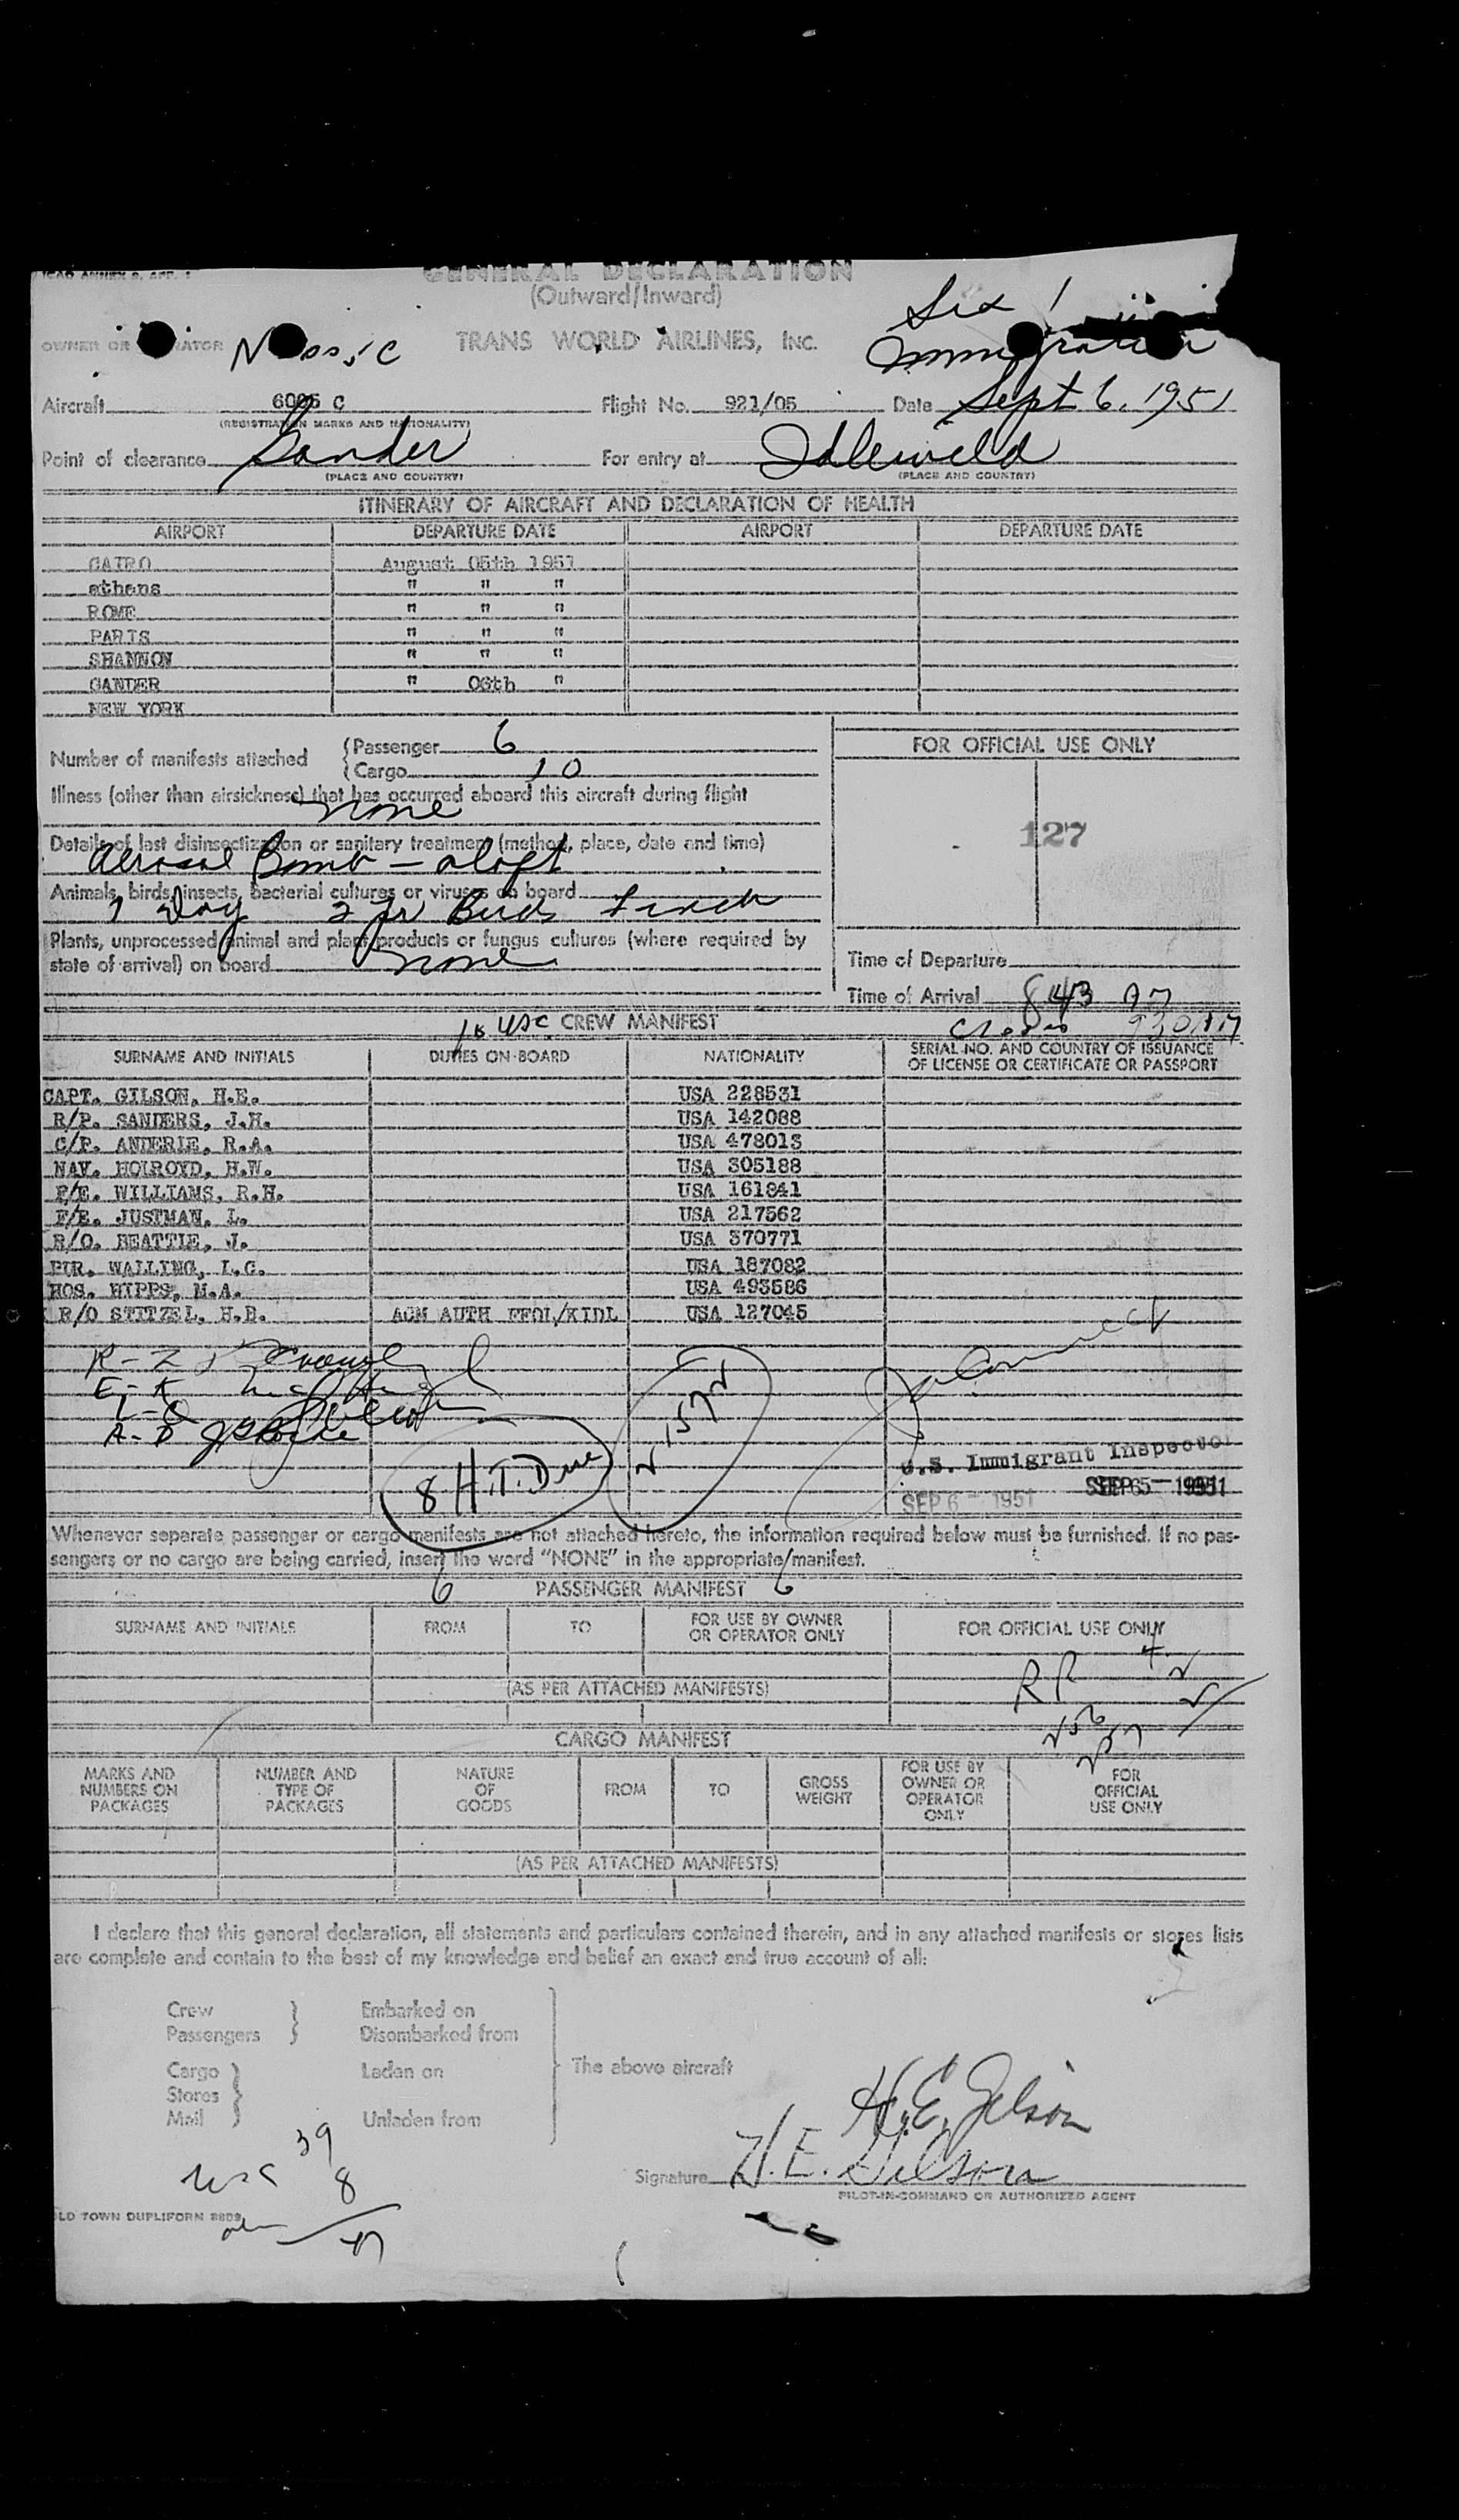 ICAO ANNEX 9, APP. 1
GENERAL DECLARATION
(Outward/Inward)
Six !
OWNER OR OPERATOR TRANS WORLD AIRLINES, INC.
Immigration
Aircraft 6005 C Flight No. 921/05 Date Sept 6, 1951
(REGISTRATION MARKS AND NATIONALITY)
Point of clearance Gander For entry at Idlewild
(PLACE AND COUNTRY) (PLACE AND COUNTRY)
ITINERARY OF AIRCRAFT AND DECLARATION OF HEALTH
AIRPORT DEPARTURE DATE AIRPORT DEPARTURE DATE
CAIRO August 05th 1951
athens " " "
ROME " " "
PARIS " " "
SHANNON " " "
GANDER " 06th "
NEW YORK
Number of manifests attached Passenger 6
Cargo 10
FOR OFFICIAL USE ONLY
Illness (other than airsickness) that has occurred aboard this aircraft during flight
none
127
Details of last disinsectization or sanitary treatment (method, place, date and time)
Aerosol Bomb - aloft
Animals, birds, insects, bacterial cultures or viruses on board
1 Dog 2 pr Birds Finch
Plants, unprocessed animal and plant products or fungus cultures (where required by
state of arrival) on board none
Time of Departure
Time of Arrival 843 AM
10 USC CREW MANIFEST
SURNAME AND INITIALS DUTIES ON-BOARD NATIONALITY SERIAL NO. AND COUNTRY OF ISSUANCE
OF LICENSE OR CERTIFICATE OR PASSPORT
CAPT. GILSON, H.E. USA 228531
R/P. SANDERS, J.H. USA 142088
C/P. ANDERIE, R.A. USA 478013
NAV. HOLROYD, H.W. USA 305188
F/E. WILLIAMS, R.H. USA 161841
F/E. JUSTMAN, L. USA 217562
R/O. BEATTIE, J. USA 370771
PUR. WALLING, L.G. USA 187082
HOS. HIPPS, M.A. USA 493586
R/O STITZEL, H.B. ACM AUTH FFOL/KIDL USA 127045
R-Z
E-K
L-Q
A-D
8 H.T. Due
U.S. Immigrant Inspector
SEP 6 - 1951
Whenever separate passenger or cargo manifests are not attached hereto, the information required below must be furnished. If no pas-
sengers or no cargo are being carried, insert the word "NONE" in the appropriate/manifest.
6 PASSENGER MANIFEST 6
SURNAME AND INITIALS FROM TO FOR USE BY OWNER
OR OPERATOR ONLY FOR OFFICIAL USE ONLY
RR 4
(AS PER ATTACHED MANIFESTS)
CARGO MANIFEST
MARKS AND
NUMBERS ON
PACKAGES NUMBER AND
TYPE OF
PACKAGES NATURE
OF
GOODS FROM TO GROSS
WEIGHT FOR USE BY
OWNER OR
OPERATOR
ONLY FOR
OFFICIAL
USE ONLY
(AS PER ATTACHED MANIFESTS)
I declare that this general declaration, all statements and particulars contained therein, and in any attached manifests or stores lists
are complete and contain to the best of my knowledge and belief an exact and true account of all:
Crew Embarked on
Passengers Disembarked from
Cargo Laden on The above aircraft
Stores
Mail Unladen from
H.E. Gilson
39
8
Signature H.E. Gilson
PILOT-IN-COMMAND OR AUTHORIZED AGENT
OLD TOWN DUPLIFORM
47